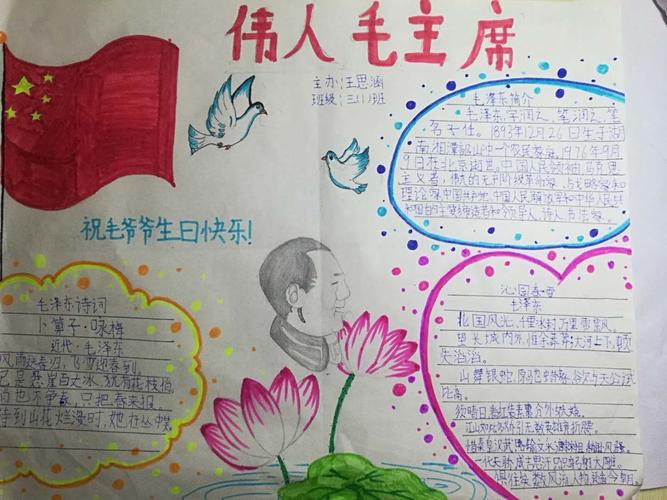 伟人毛主席
主办:王思涵
班级:三(1)班
毛泽东简介
毛泽东,字润之,笔
名子任。1893年12月26日生于湖
南湘潭韶山冲一个农民家庭。1976年9月
9日在北京逝世。中国人民领袖,马克思
主义者,伟大的无产阶级革命家、战略家和
理论家,中国共产党、中国人民解放军和中华人民共
和国的主要缔造者和领导人,诗人,书法家。
祝毛爷爷生日快乐!
毛泽东诗词
卜算子·咏梅
近代·毛泽东
风雨送春归,飞雪迎春到。
已是悬崖百丈冰,犹有花枝俏
俏也不争春,只把春来报
待到山花烂漫时,她在丛中笑
沁园春·雪
毛泽东
北国风光,千里冰封,万里雪飘。
望长城内外,惟余莽莽;大河上下,顿
失滔滔。
山舞银蛇,原驰蜡象,欲与天公试
比高。
须晴日,看红装素裹,分外妖娆。
江山如此多娇,引无数英雄竞折腰。
惜秦皇汉武,略输文采;唐宗宋祖,稍逊风骚。
一代天骄,成吉思汗,只识弯弓射大雕。
俱往矣,数风流人物,还看今朝。